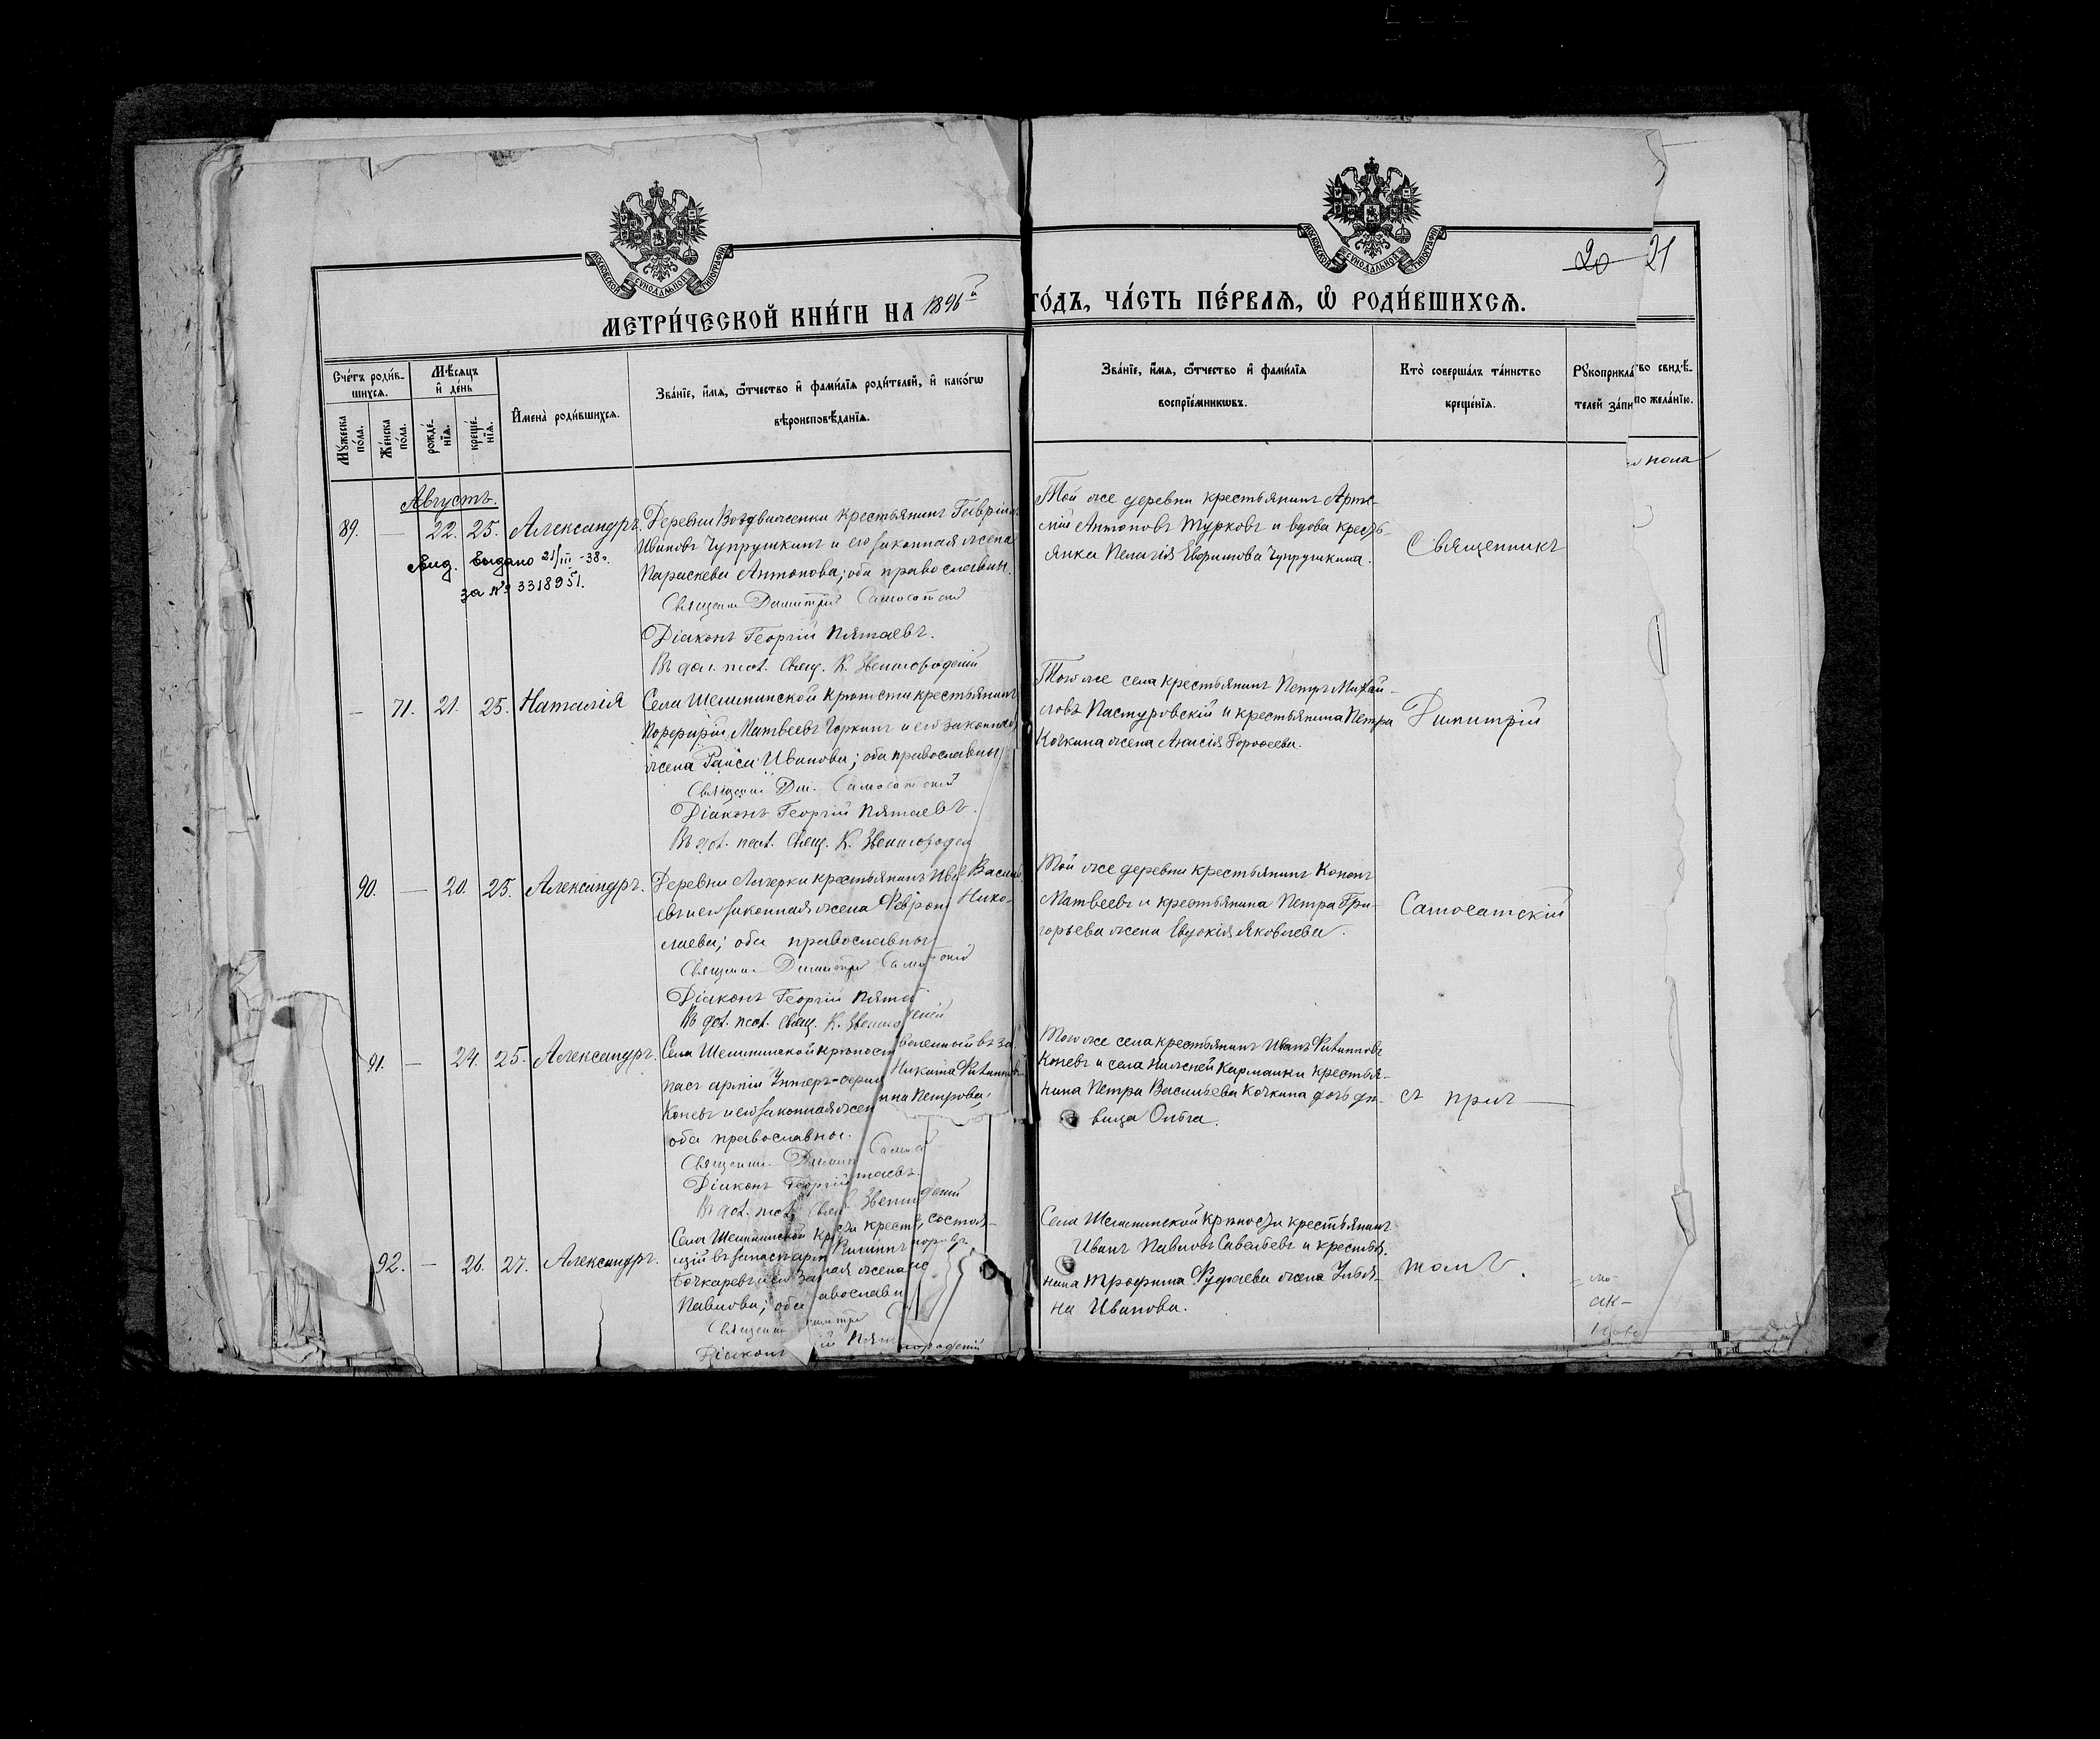 МОСКОВСКОЙ СѴНОДАЛЬНОЙ ТИПОГРАФІИ
МОСКОВСКОЙ СѴНОДАЛЬНОЙ ТИПОГРАФІИ
20 21
МЕТРИ́ЧЕСКОЙ КНИ́ГИ НА 1896й ГО́ДЪ, ЧА́СТЬ ПЕ́РВАѦ, Ѡ҆ РОДИ́ВШИХСѦ.
Сче́тъ роди́в-
шихсѧ.
Мꙋ́жеска по́ла.
Же́нска по́ла.
Мѣ́сѧцъ
и҆ де́нь
рожде́-
нїѧ.
креще́-
нїѧ.
И҆мена̀ роди́вшихсѧ.
Зва́нїе, и҆́мѧ, ѻ҆́тчество и҆ фами́лїѧ роди́телей, и҆ како́гѡ
вѣроисповѣ́данїѧ.
Зва́нїе, и҆́мѧ, ѻ҆́тчество и҆ фами́лїѧ
воспрїе́мникѡвъ.
Кто̀ соверша́лъ та́инство
креще́нїѧ.
Рꙋкоприкла во свидѣ́-
телей за́пи по жела́нїю.
пола
Августъ.
89. — 22. 25. Александръ.
Деревни Воздвиженки крестьянинъ Гаврііл
Ивановъ Чупрушкинъ и его законная жена
Параскева Антонова; оба православны.
Священ Димитрій Самосатскій
Діаконъ Георгій Пятаевъ.
Въ дол. псал. Свящ. К. Звенигородскій
Той же деревни крестьянинъ Арте-
мій Антоновъ Турковъ и вдова кресть-
янка Пелагія Евфимова Чупрушкина.
Священникъ
Выдано 21/III -38г.
за № 3318951.
— 71. 21. 25. Наталія
Села Шешминской Крѣпости крестьянинъ
Порфирій Матвеевъ Горкинъ и его законная
жена Раиса Иванова; оба православны
Священ Дим. Самосатскій
Діаконъ Георгій Пятаевъ.
Въ дол. псал. Свящ. К. Звенигородск
Того же села крестьянинъ Петръ Михай-
ловъ Пастуровскій и крестьянина Петра
Кочкина жена Анисія Дороѳеева.
Димитрій
90. — 20. 25. Александръ.
Деревни крестьянинъ Ива Василь
евъ и его законная жена Феврон Нико-
лаева; оба православны
Священ Димитрій Само
Діаконъ Георгій Пята
Въ дол. псал. Свящ. К. Звениго
Той же деревни крестьянинъ Кононъ
Матвеевъ и крестьянина Петра Гри-
горьева жена Евдокія Яковлева.
Самосатскій
91. — 24. 25. Александръ.
Села Шешминской крѣпост воленный въ за
пасъ арміи Унтеръ-офиц Никита Филиппов
Коневъ и его законная жен нна Петрова;
оба православны.
Священ. Димит Самос
Діаконъ Георгій таевъ.
Въ дол. псал. Свящ Звениг
Того же села крестьянинъ Иванъ Филипповъ
Коневъ и села Нижней Кармалки крестья-
нина Петра Васильева Кочкина дочь дѣ-
вица Ольга.
съ прич
92. — 26. 27. Александръ.
Села Шешминской Кр кресть состоя-
щій въ запасѣ арм Филиппъ
Бочкаревъ и его зак ная жена
Павлова; оба авославн
Священ митрій
Діаконъ ій Пят
Села Шешминской Крѣпости крестьянинъ
Иванъ Павловъ Савельевъ и крестья-
нина Трофима Фадѣева жена Улья-
на Иванова.
томъ.